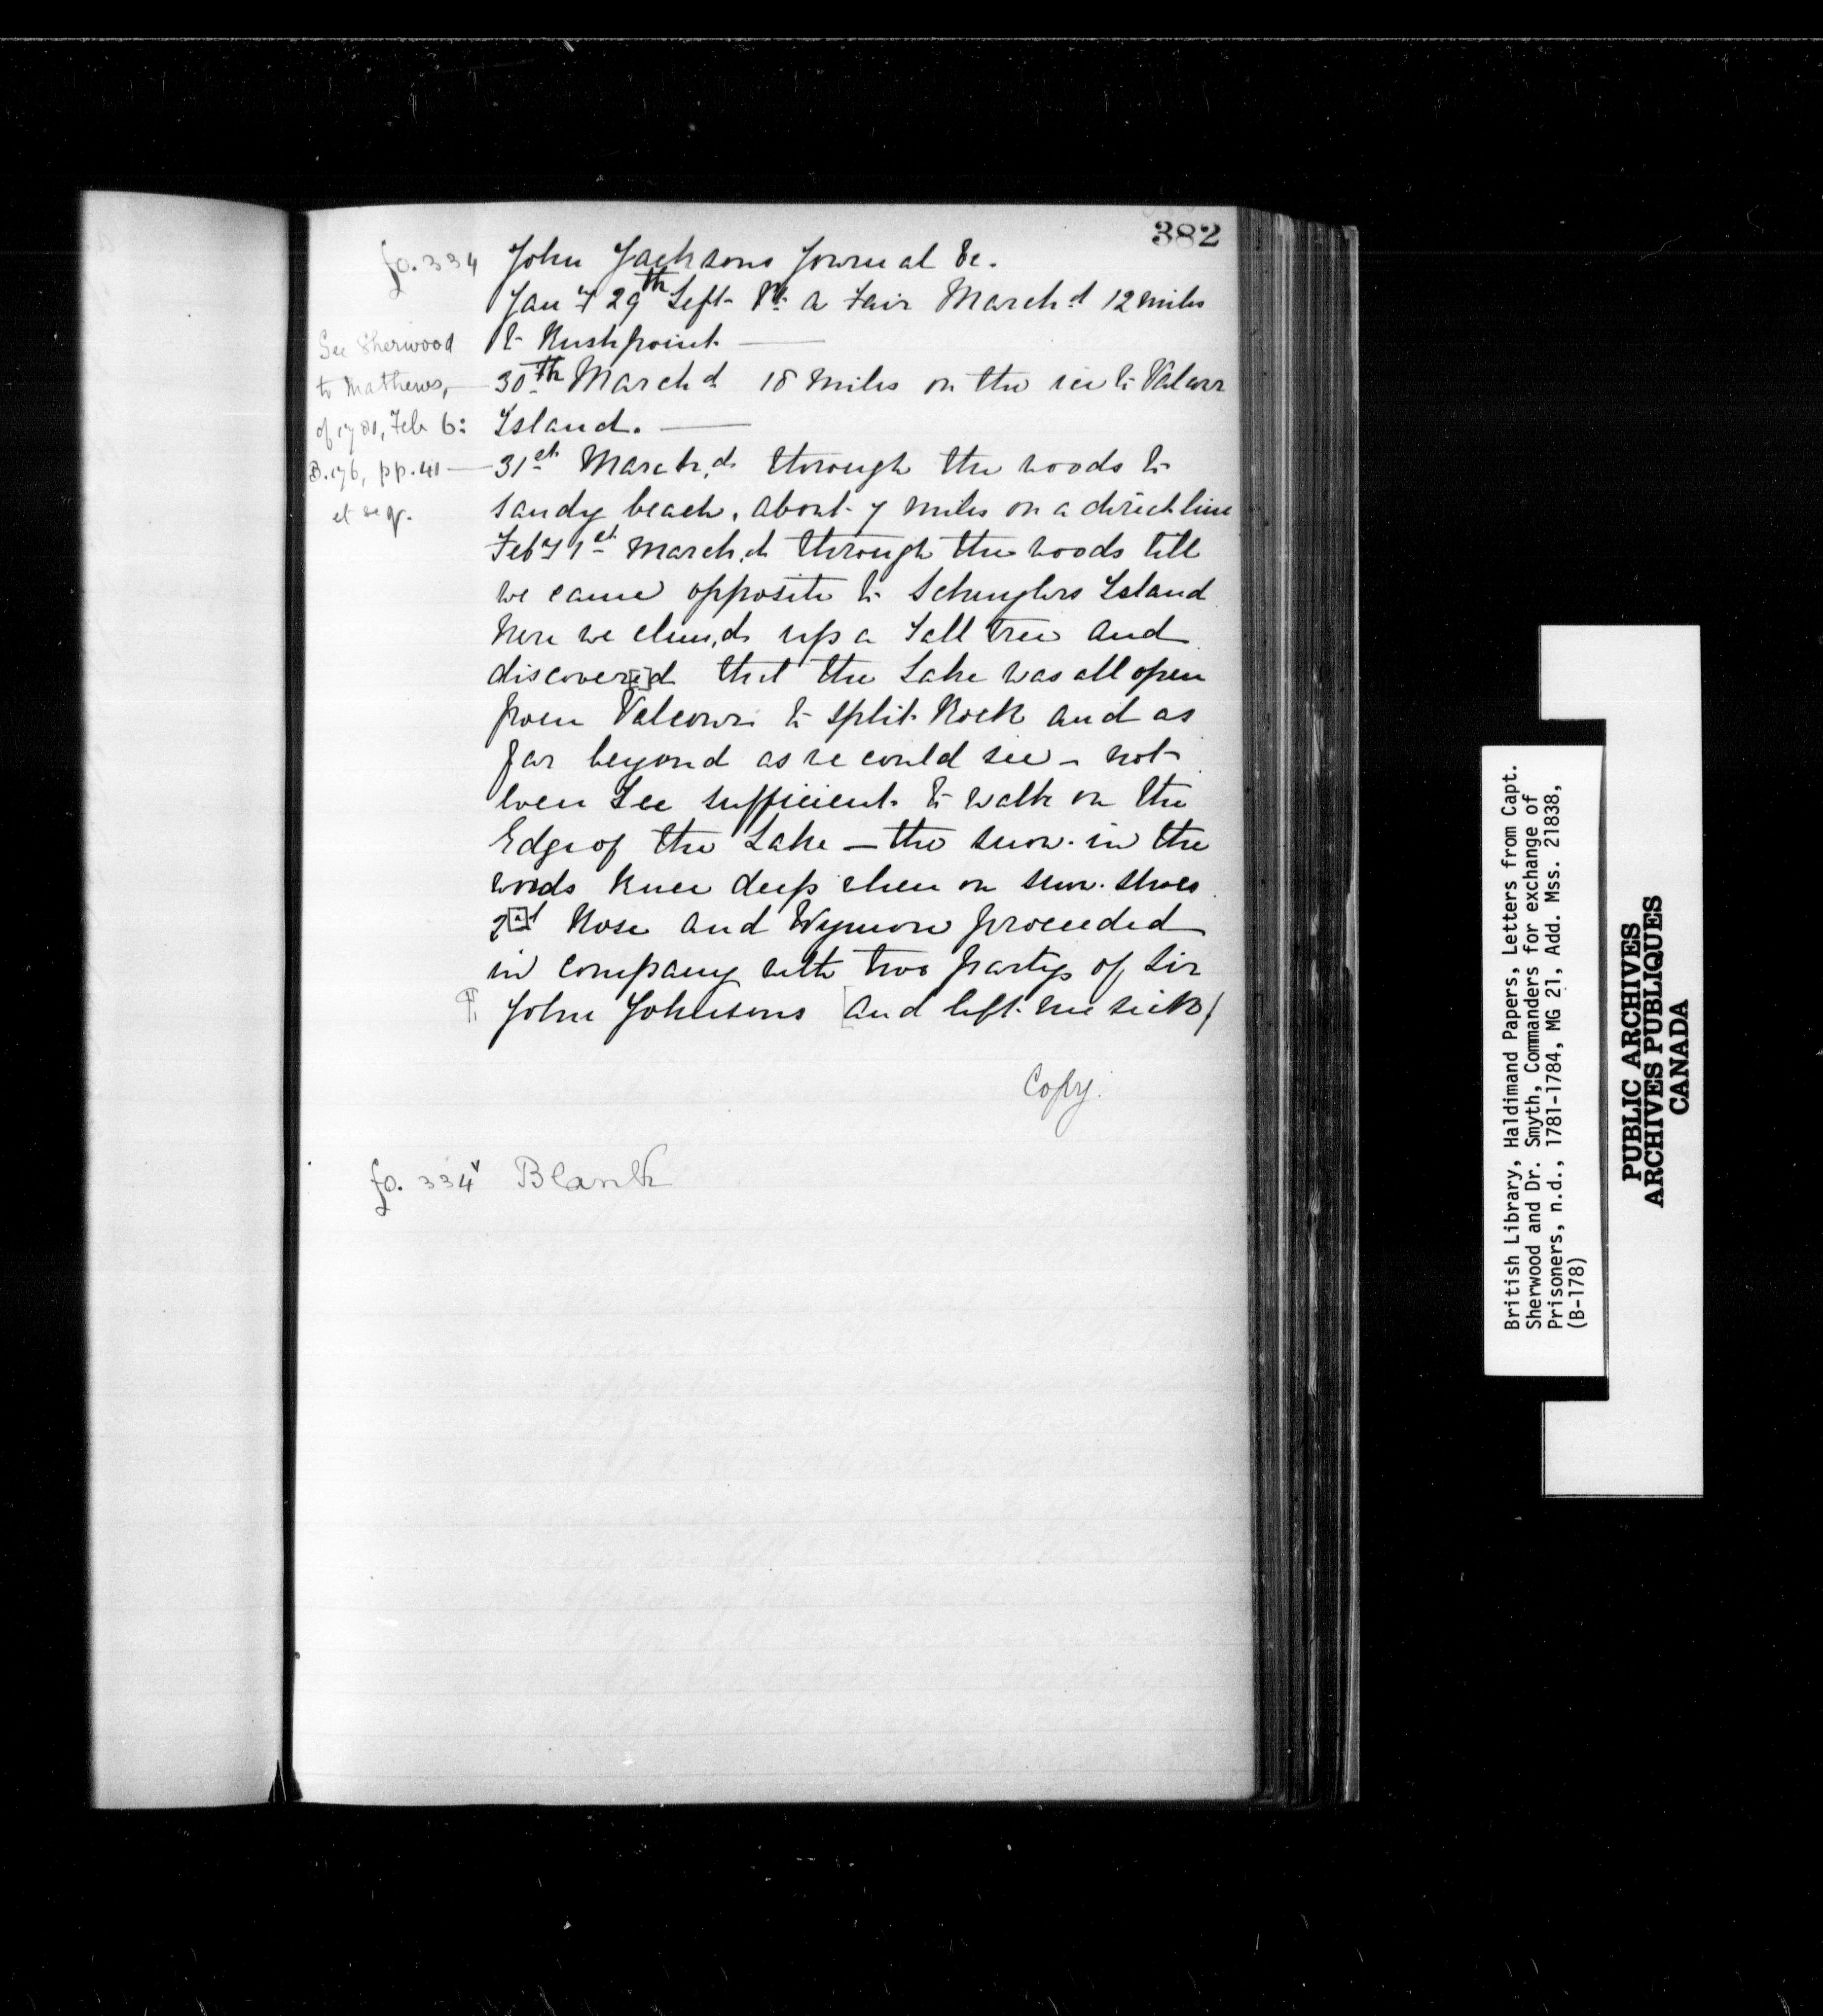 382
fo. 334 John Jacksons Journal &c.
Jany 29th Left Pt. a Fair March.d 12 miles
to Rushpoint —
30th March.d 18 miles on the ice to Valcour
Island. —
31st March.d through the woods to
sandy beach, about 7 miles on a direct line
Feby 1st March.d through the woods till
we came opposite to Schuylers Island
here we clim.d up a Tall tree and
discover[e]d that the Lake was all open
from Valcour to split Rock and as
far beyond as we could see – not
even Ice sufficient to walk on the
Edge of the Lake — the snow in the
woods knee deep when on snow shoes
2[n]d Rose and Wymore proceeded
in company with two partys of Sir
John Johnsons [and left me sick)
Copy.
See Sherwood
to Mathews,
of 1781, Feb 6:
B.176, pp. 41
et seq.
fo. 334v Blank
British Library, Haldimand Papers, Letters from Capt.
Sherwood and Dr. Smyth, Commanders for exchange of
Prisoners, n.d., 1781-1784, MG 21, Add. Mss. 21838,
(B-178)
PUBLIC ARCHIVES
ARCHIVES PUBLIQUES
CANADA